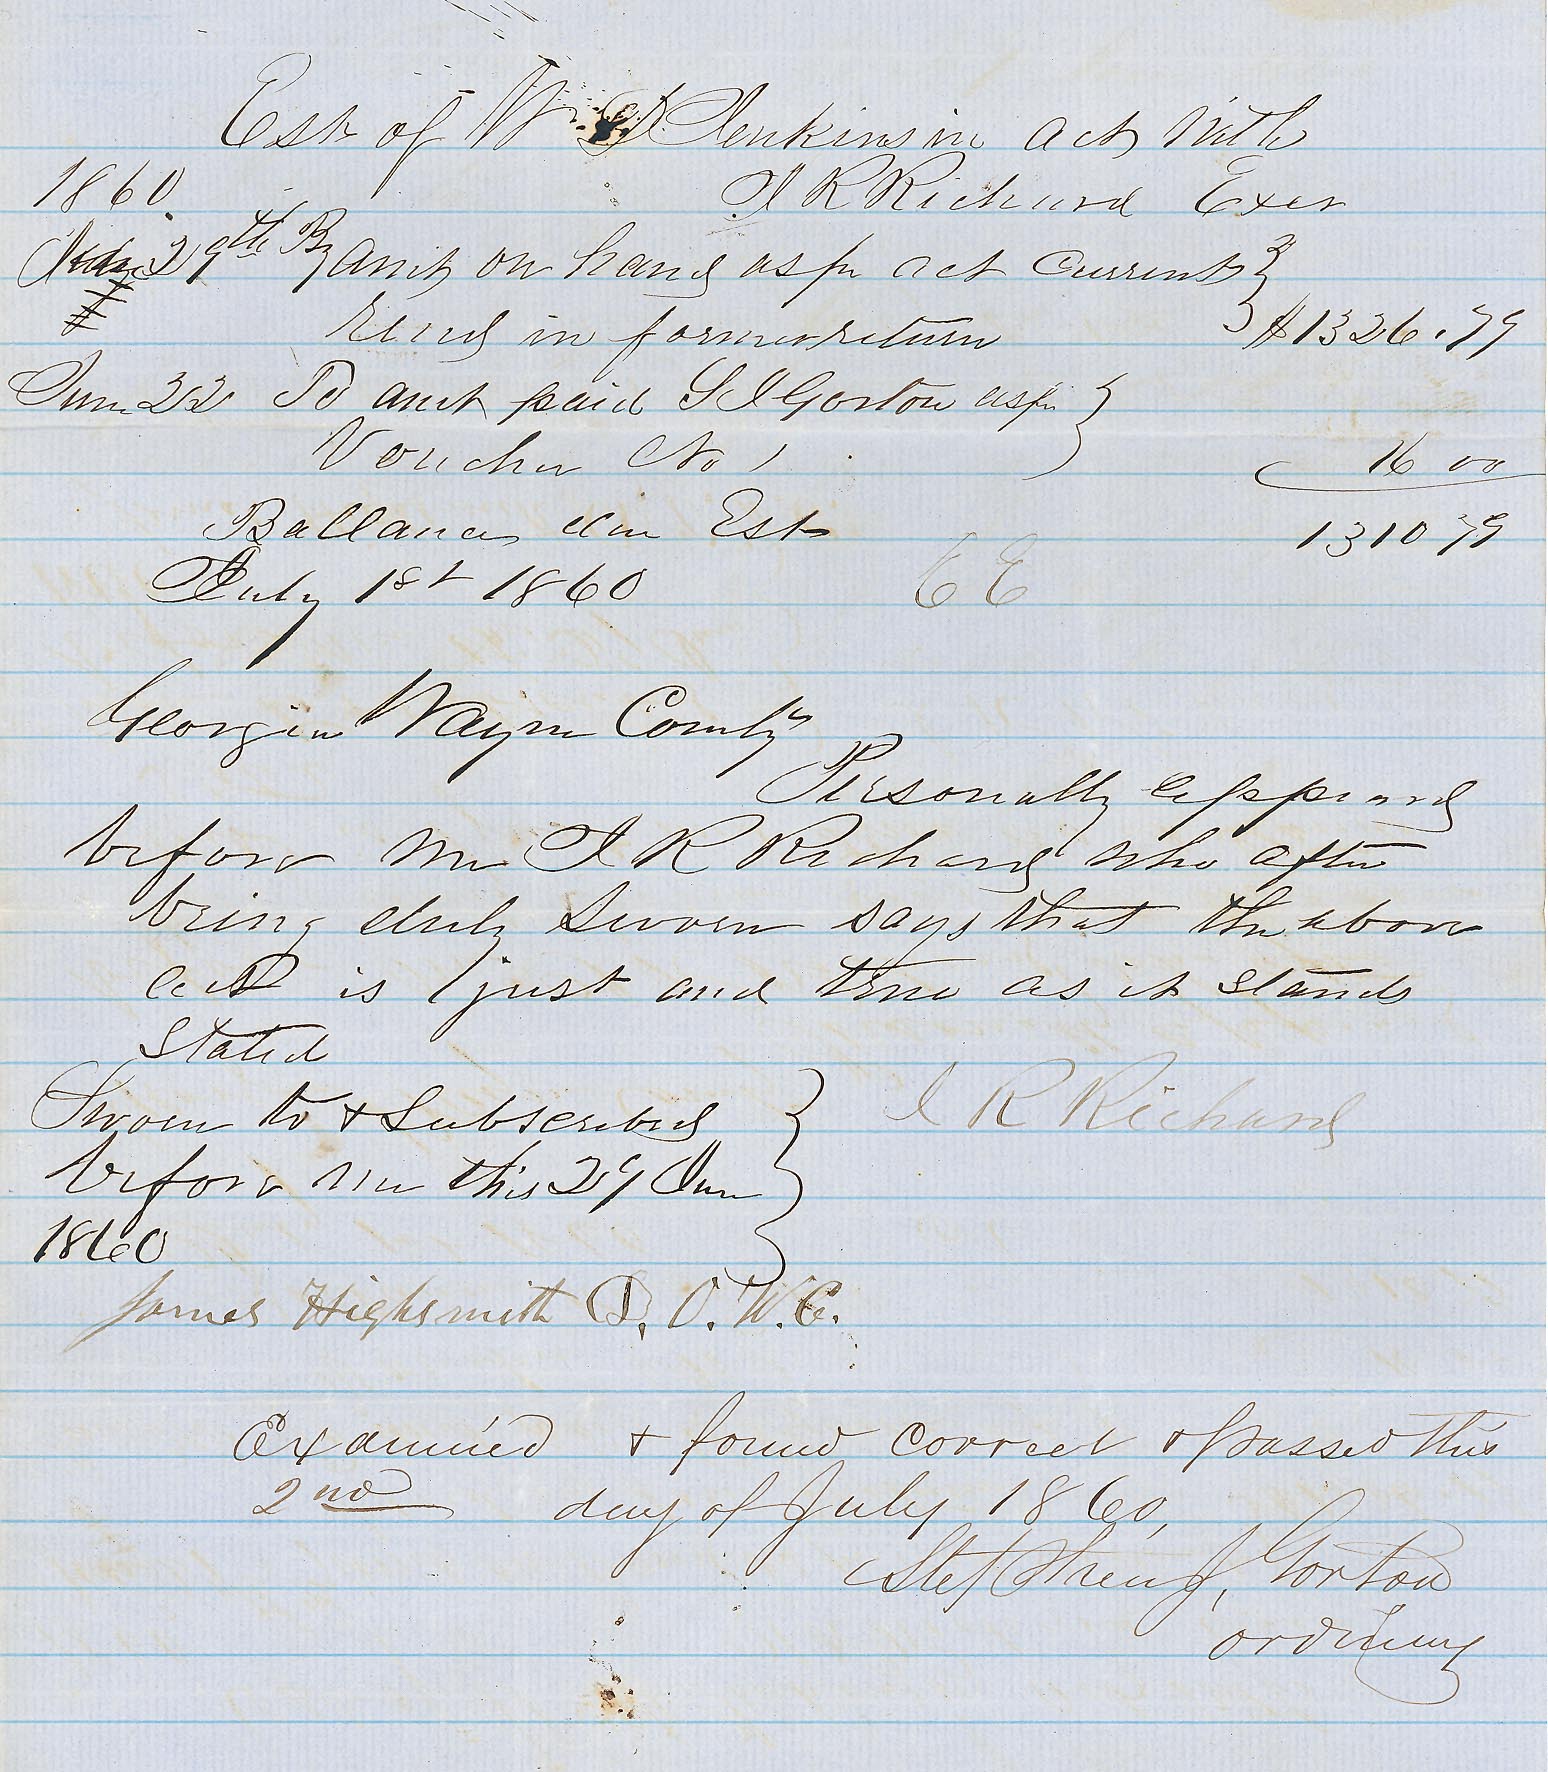 Est of W D Jenkins in act with
1860 I R Richard Exer
29th By amt on hand as pr act Current
in former return $1326.79
June 22 To amt paid S J Gorton as pr
Voucher No 1 16 00
Ballance due Est 1310 79
July 1st 1860 E E
Georgia Wayne County
Personally appeard
before me I R Richard who after
being duly sworn says that the above
act is just and true as it stands
stated
Sworn to & Subscribed I R Richard
before me this 29 June
1860
James Highsmith D. O. W. C.
Examined & found correct & passed this
2nd day of July 1860,
Stephen J, Gorton
ordinary